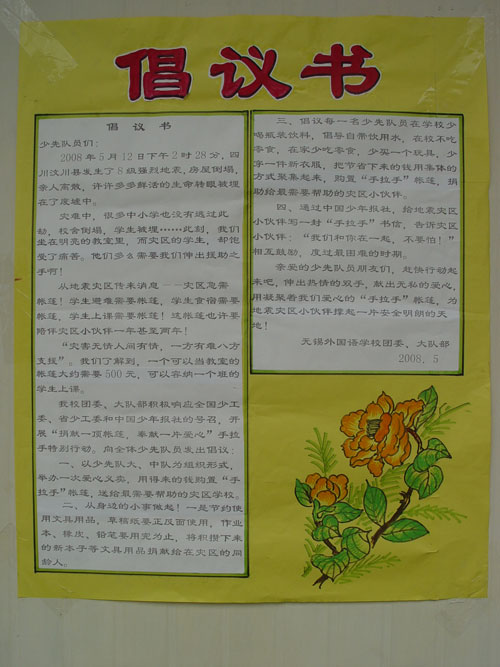 倡议书
倡 议 书
少先队员们：
2008年5月12日下午2时28分，四
川汶川县发生了8级强烈地震，房屋倒塌，
亲人离散，许许多多鲜活的生命转眼被埋
在了废墟中。
灾难中，很多中小学也没有逃过此
劫，校舍倒塌，学生被埋……此刻，我们
坐在明亮的教室里，而灾区的学生，却饱
受了痛苦。他们多么需要我们伸出援助之
手啊！
从地震灾区传来消息---灾区急需
帐篷！学生避难需要帐篷，学生食宿需要
帐篷，学生上课需要帐篷！这帐篷也许要
陪伴灾区小伙伴一年甚至两年！
“灾害无情人间有情，一方有难八方
支援”。我们了解到，一个可以当教室的
帐篷大约需要500元，可以容纳一个班的
学生上课。
我校团委、大队部积极响应全国少工
委、省少工委和中国少年报社的号召，开
展“捐献一顶帐篷，奉献一片爱心”手拉
手特别行动。向全体少先队员发出倡议：
一、以少先队大、中队为组织形式，
举办一次爱心义卖，用得来的钱购置“手
拉手”帐篷，送给最需要帮助的灾区学校。
二、从身边的小事做起！一是节约使
用文具用品，草稿纸要正反面使用，作业
本、橡皮、铅笔要用完为止，将积攒下来
的新本子等文具用品捐献给在灾区的同
龄人。
三、倡议每一名少先队员在学校少
喝瓶装饮料，倡导自带饮用水，在校不吃
零食，在家少吃零食，少买一个玩具，少
穿一件新衣服，把节省下来的钱用集体的
方式聚集起来，购置“手拉手”帐篷，捐
助给最需要帮助的灾区小伙伴。
四、通过中国少年报社，给地震灾区
小伙伴写一封“手拉手”书信，告诉灾区
小伙伴：“我们和你在一起，不要怕！”
相互鼓励，度过最困难的时期。
亲爱的少先队员朋友们，赶快行动起
来吧，伸出热情的双手，献出无私的爱心，
用凝聚着我们爱心的“手拉手”帐篷，为
地震灾区小伙伴撑起一片安全明朗的天
地！
无锡外国语学校团委、大队部
2008．5